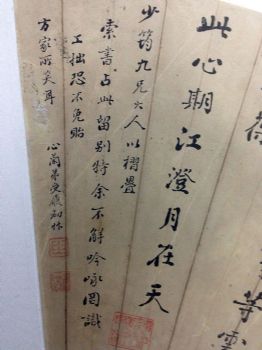 荷
等雲
此心期江澄月在天
少筠九兄大人以摺疊
索書占此留别特余不解吟咏罔識
工拙恐不免貽
方家所笑耳
心蘭弟